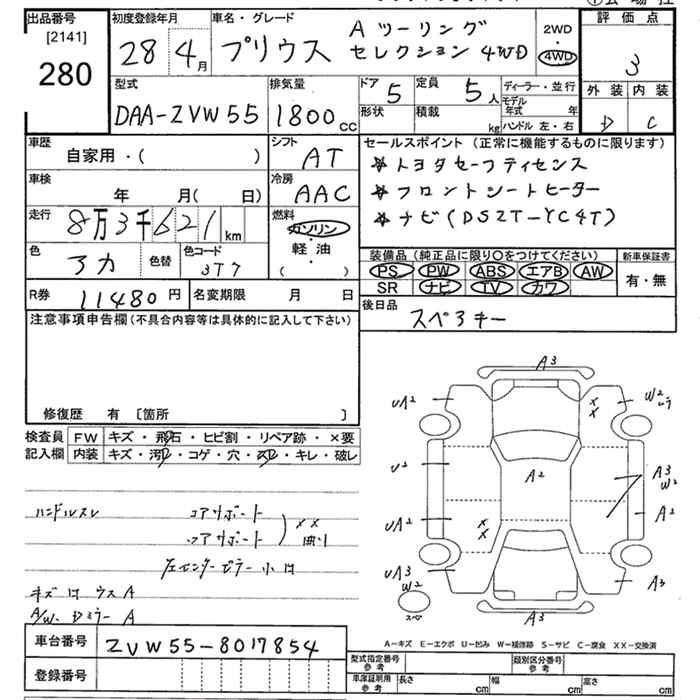 出品番号 初度登録年月 車名・グレード 評価点
[2141]
280
28 4月 プリウス Aツーリング
セレクション 4WD
2WD
4WD
3
型式 排気量 ドア 定員 ディーラー・並行 外装 内装
DAA-ZVW55 1800cc 5 5人
形状 積載 kg
モデル年式 年
ハンドル 左・右
D C
車歴 シフト セールスポイント (正常に機能するものに限ります)
自家用・( ) AT
☆トヨタセーフティセンス
車検 冷房
年 月(日) AAC
☆フロントシートヒーター
走行 燃料
8万3千621km ガソリン
☆ナビ(DSZT-YC4T)
・
軽油
・
( )
色 色替 色コード
アカ 3T7
装備品 (純正品に限り〇をつけてください) 新車保証書
PS PW ABS エアB AW
SR ナビ TV カワ
有・無
R券 11480円 名変期限 月 日
後日品
スペアキー
注意事項申告欄(不具合内容等は具体的に記入して下さい)
修復歴 有 [箇所 ]
検査員 FW キズ・飛石・ヒビ割・リペア跡・×要
記入欄 内装 キズ・汚れ・コゲ・穴・スレ・キレ・破レ
ハンドルスレ コアサポート
××
コアサポート 曲り
左センターピラー小凹
キズ凹ウスA
A/W. Dミラー A
A3
UA2
××
W2
U2
A2
A3
W2
A2
UA2
××
UA3
W2
スペア
A3
A3
車台番号 ZVW55-8017854
登録番号
A-キズ E-エクボ U-凹み W-補修跡 S-サビ C-腐食 XX-交換済
型式指定番号 参考 類別区分番号 参考
車庫証明用 参考 長さ cm 幅 cm 高さ cm